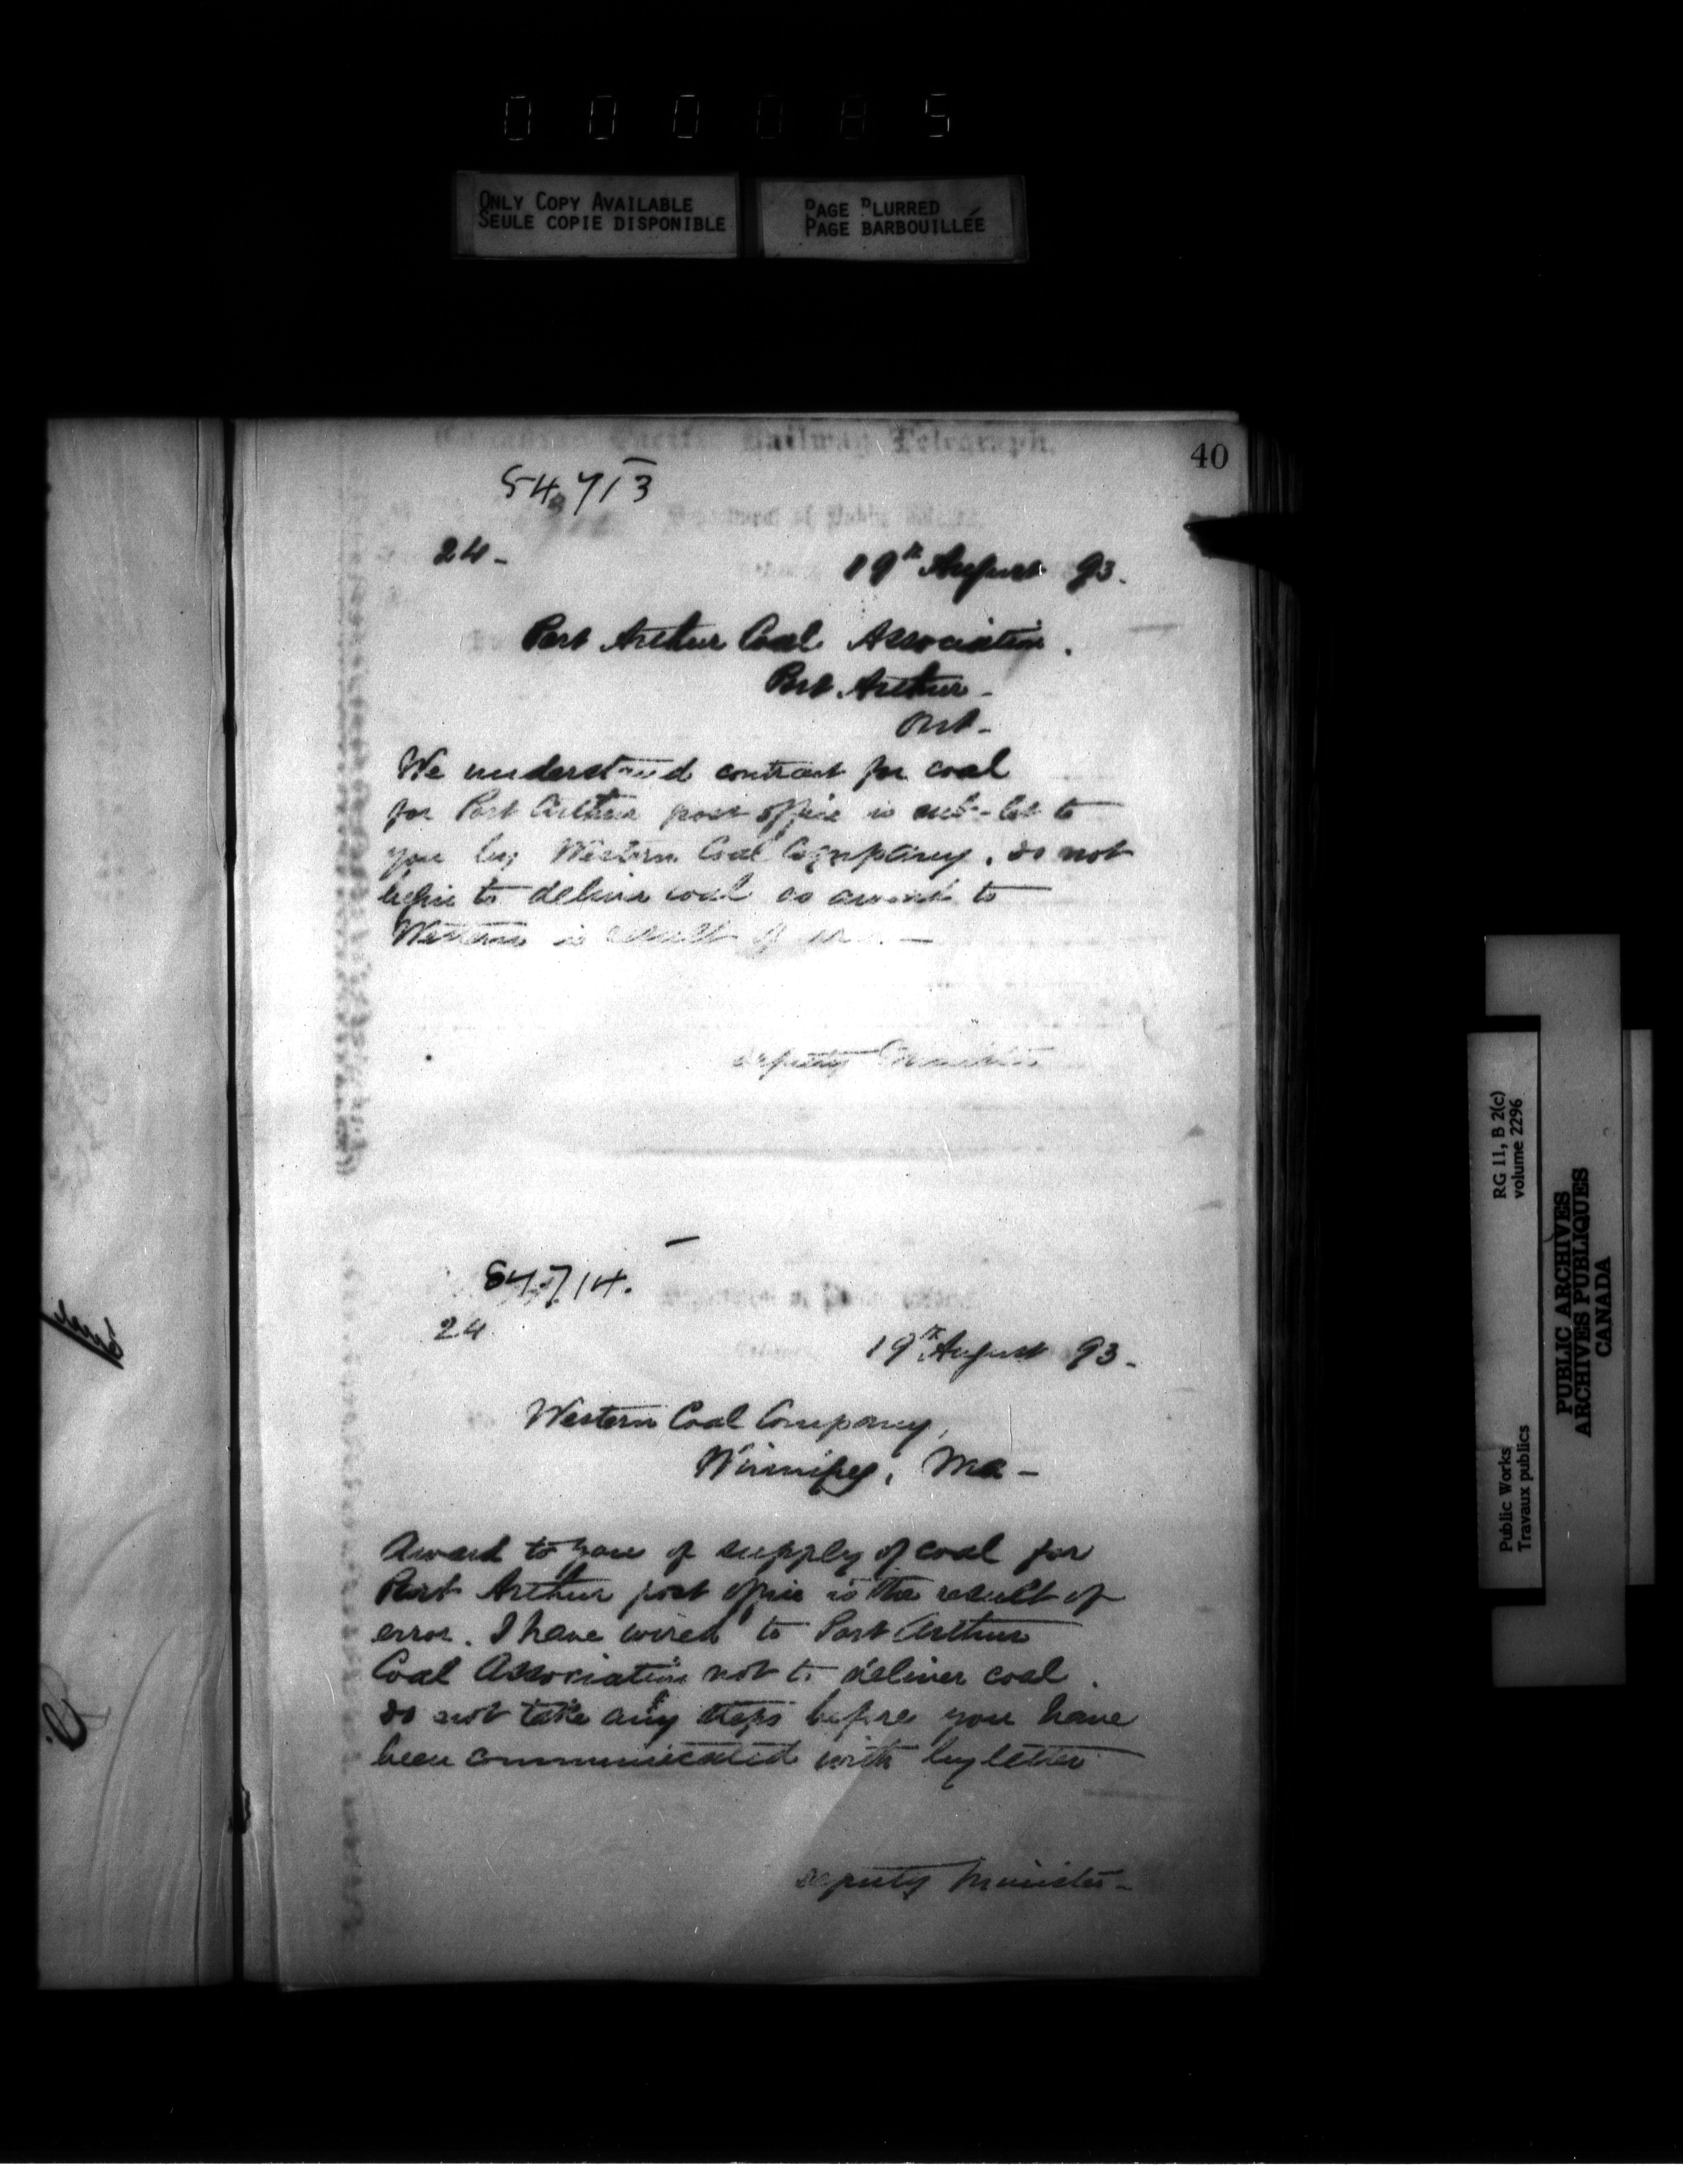 0 0 0 0 8 5
ONLY COPY AVAILABLE
SEULE COPIE DISPONIBLE
PAGE BLURRED
PAGE BARBOUILLÉE
Canadian Pacific Railway Telegraph.
40
54,713
Department of Public Works.
24-
19th August 93.
Port Arthur Coal Association.
Port Arthur-
Ont-
We understand contract for coal
for Port Arthur post office is sub-let to
you by Western Coal Company, do not
begin to deliver coal as award to
Western is result of error.
Deputy Minister
54,714.
Department of Public Works.
24
19th August 93-
Western Coal Company,
Winnipeg, Ma-
Award to you of supply of coal for
Port Arthur post office is the result of
error. I have wired to Port Arthur
Coal Association not to deliver coal.
do not take any steps before you have
been communicated with by letter
Deputy Minister-
RG 11, B 2(c)
volume 2296
Public Works
Travaux publics
PUBLIC ARCHIVES
ARCHIVES PUBLIQUES
CANADA